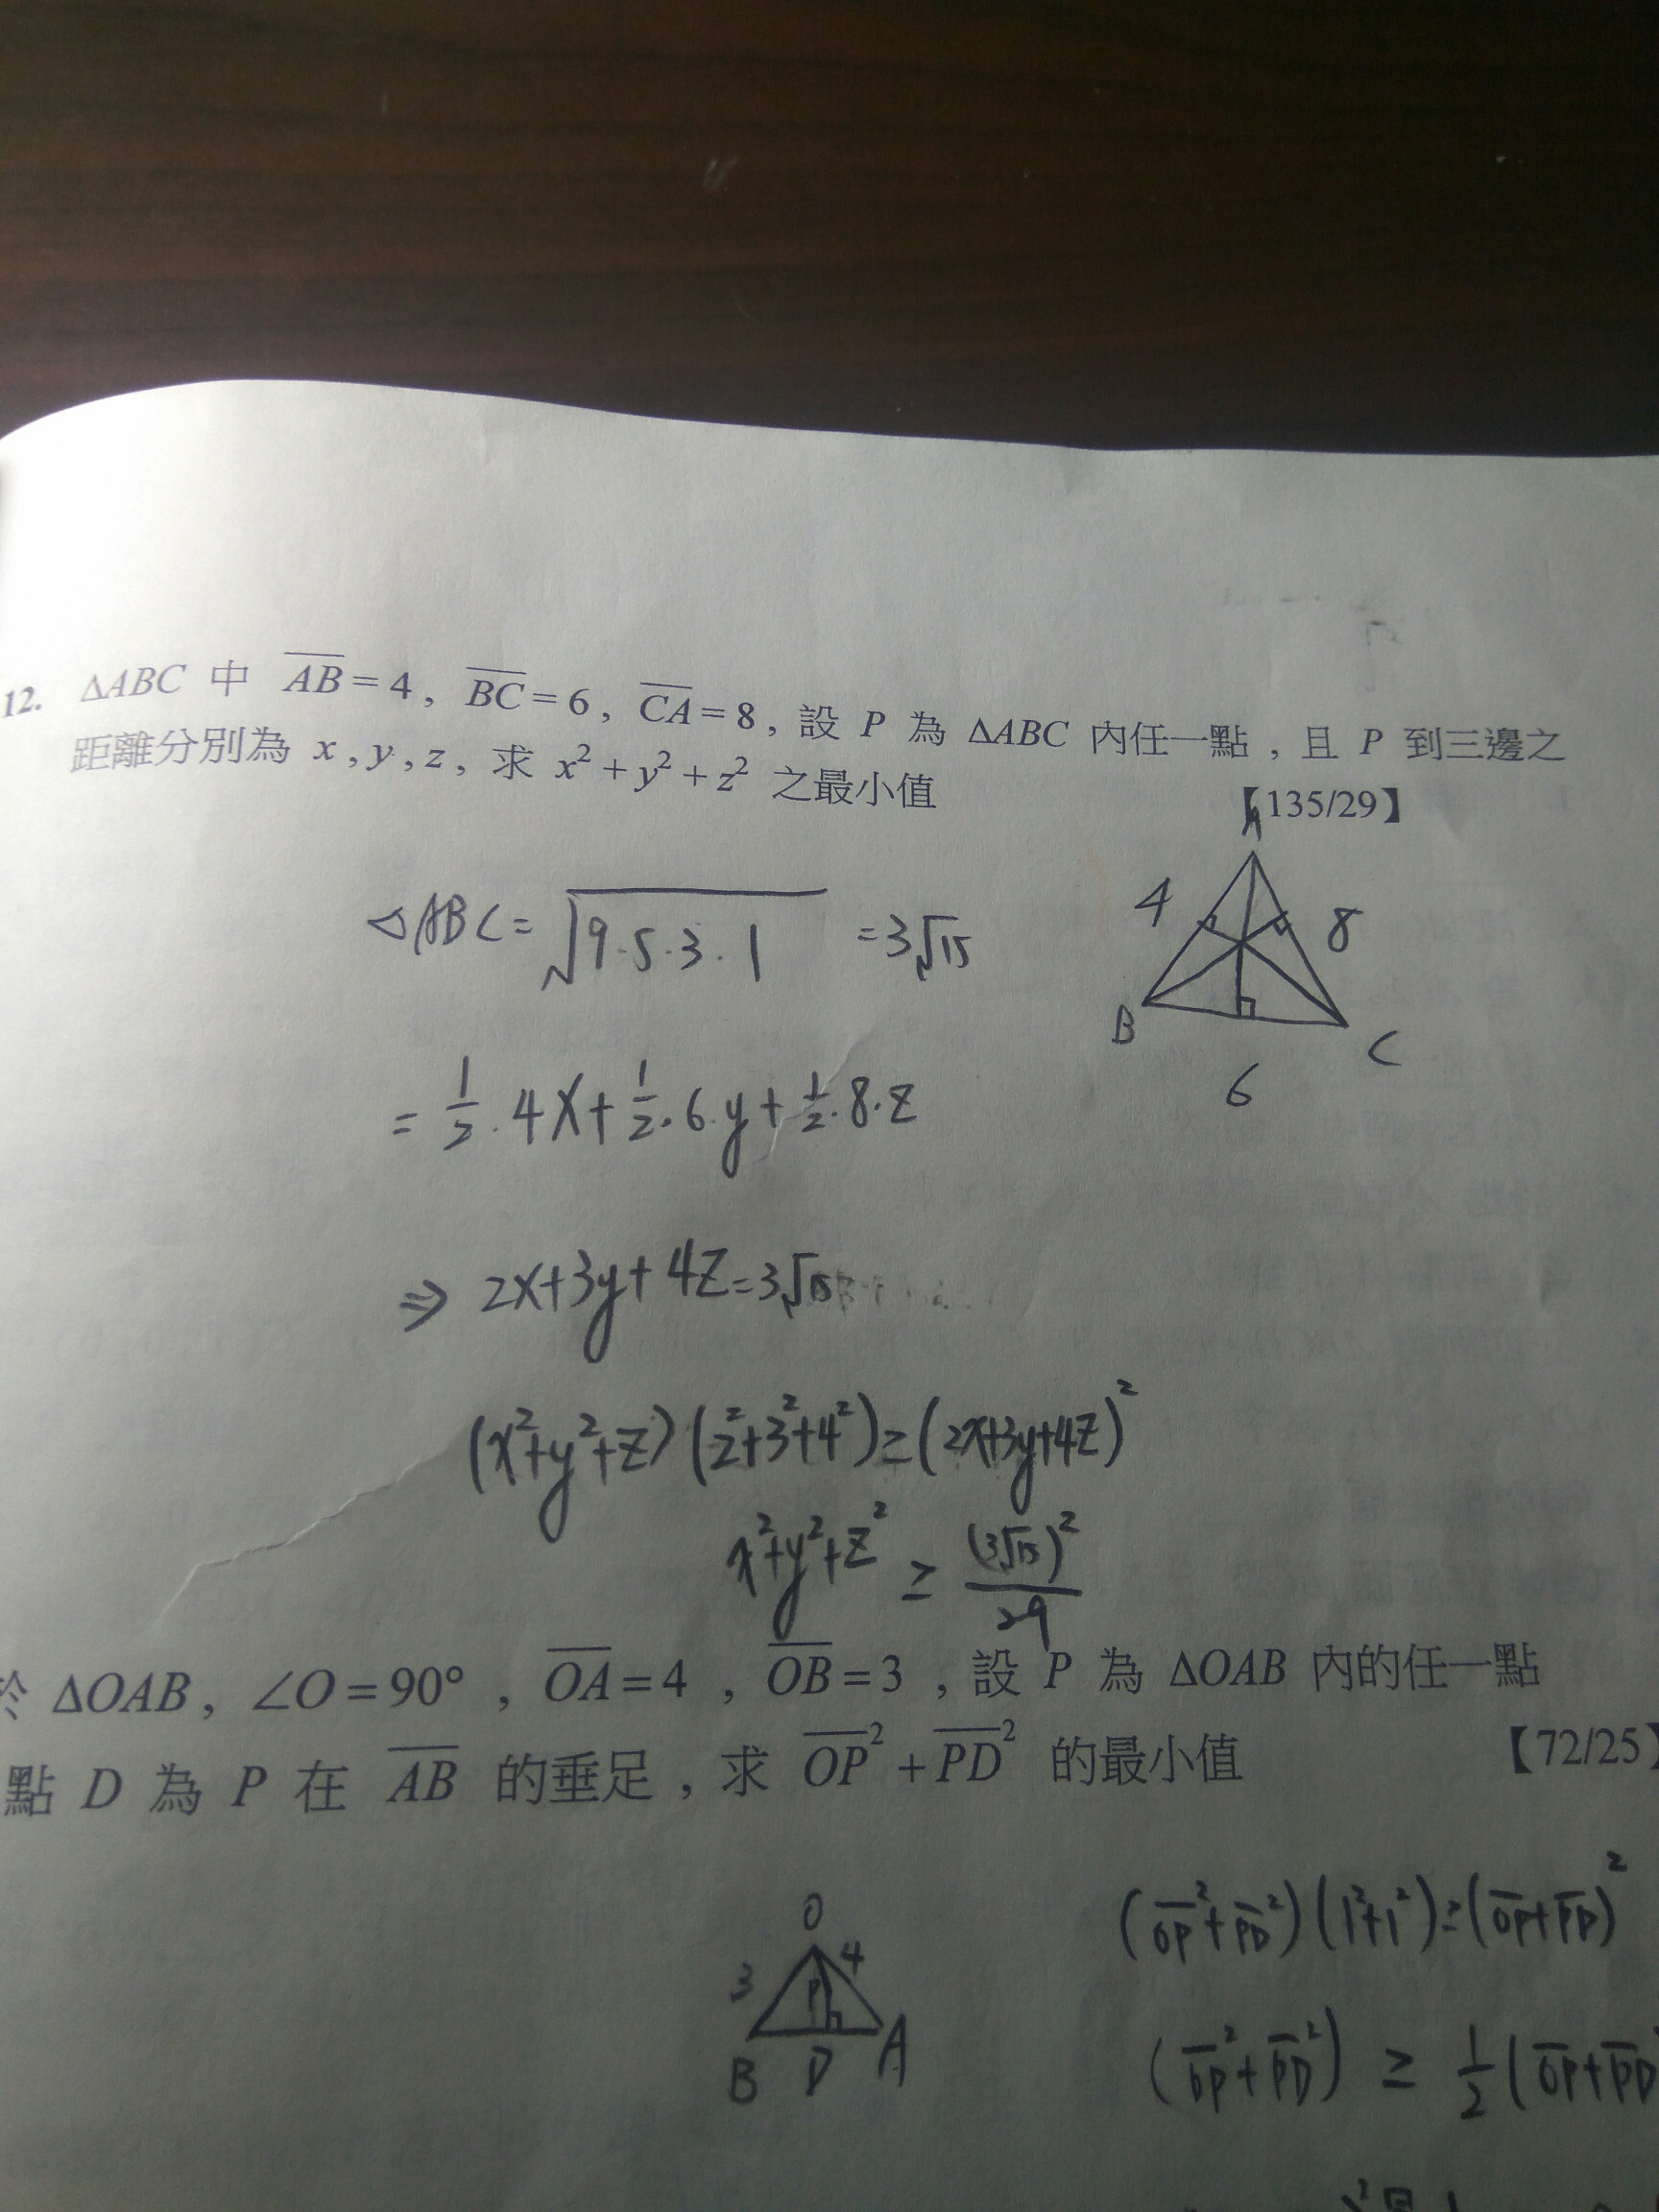 12. △ABC 中 AB=4, BC=6, CA=8, 設 P 為 △ABC 內任一點, 且 P 到三邊之
距離分別為 x, y, z, 求 x²+y²+z² 之最小值 【135/29】
△ABC=√9·5·3·1 =3√15
A
4 8
B C
6
=1/2·4x+1/2·6·y+1/2·8·z
⇒ 2x+3y+4z=3√15
(x²+y²+z)(2²+3²+4²)≥(2x+3y+4z)²
x²+y²+z² ≥ (3√15)²/29
於 △OAB, ∠O=90°, OA=4, OB=3, 設 P 為 △OAB 內的任一點
點 D 為 P 在 AB 的垂足, 求 OP²+PD² 的最小值 【72/25】
O
3 4
P
B D A
(OP²+PD²)(1²+1²)≥(OP+PD)²
(OP²+PD²) ≥ 1/2(OP+PD